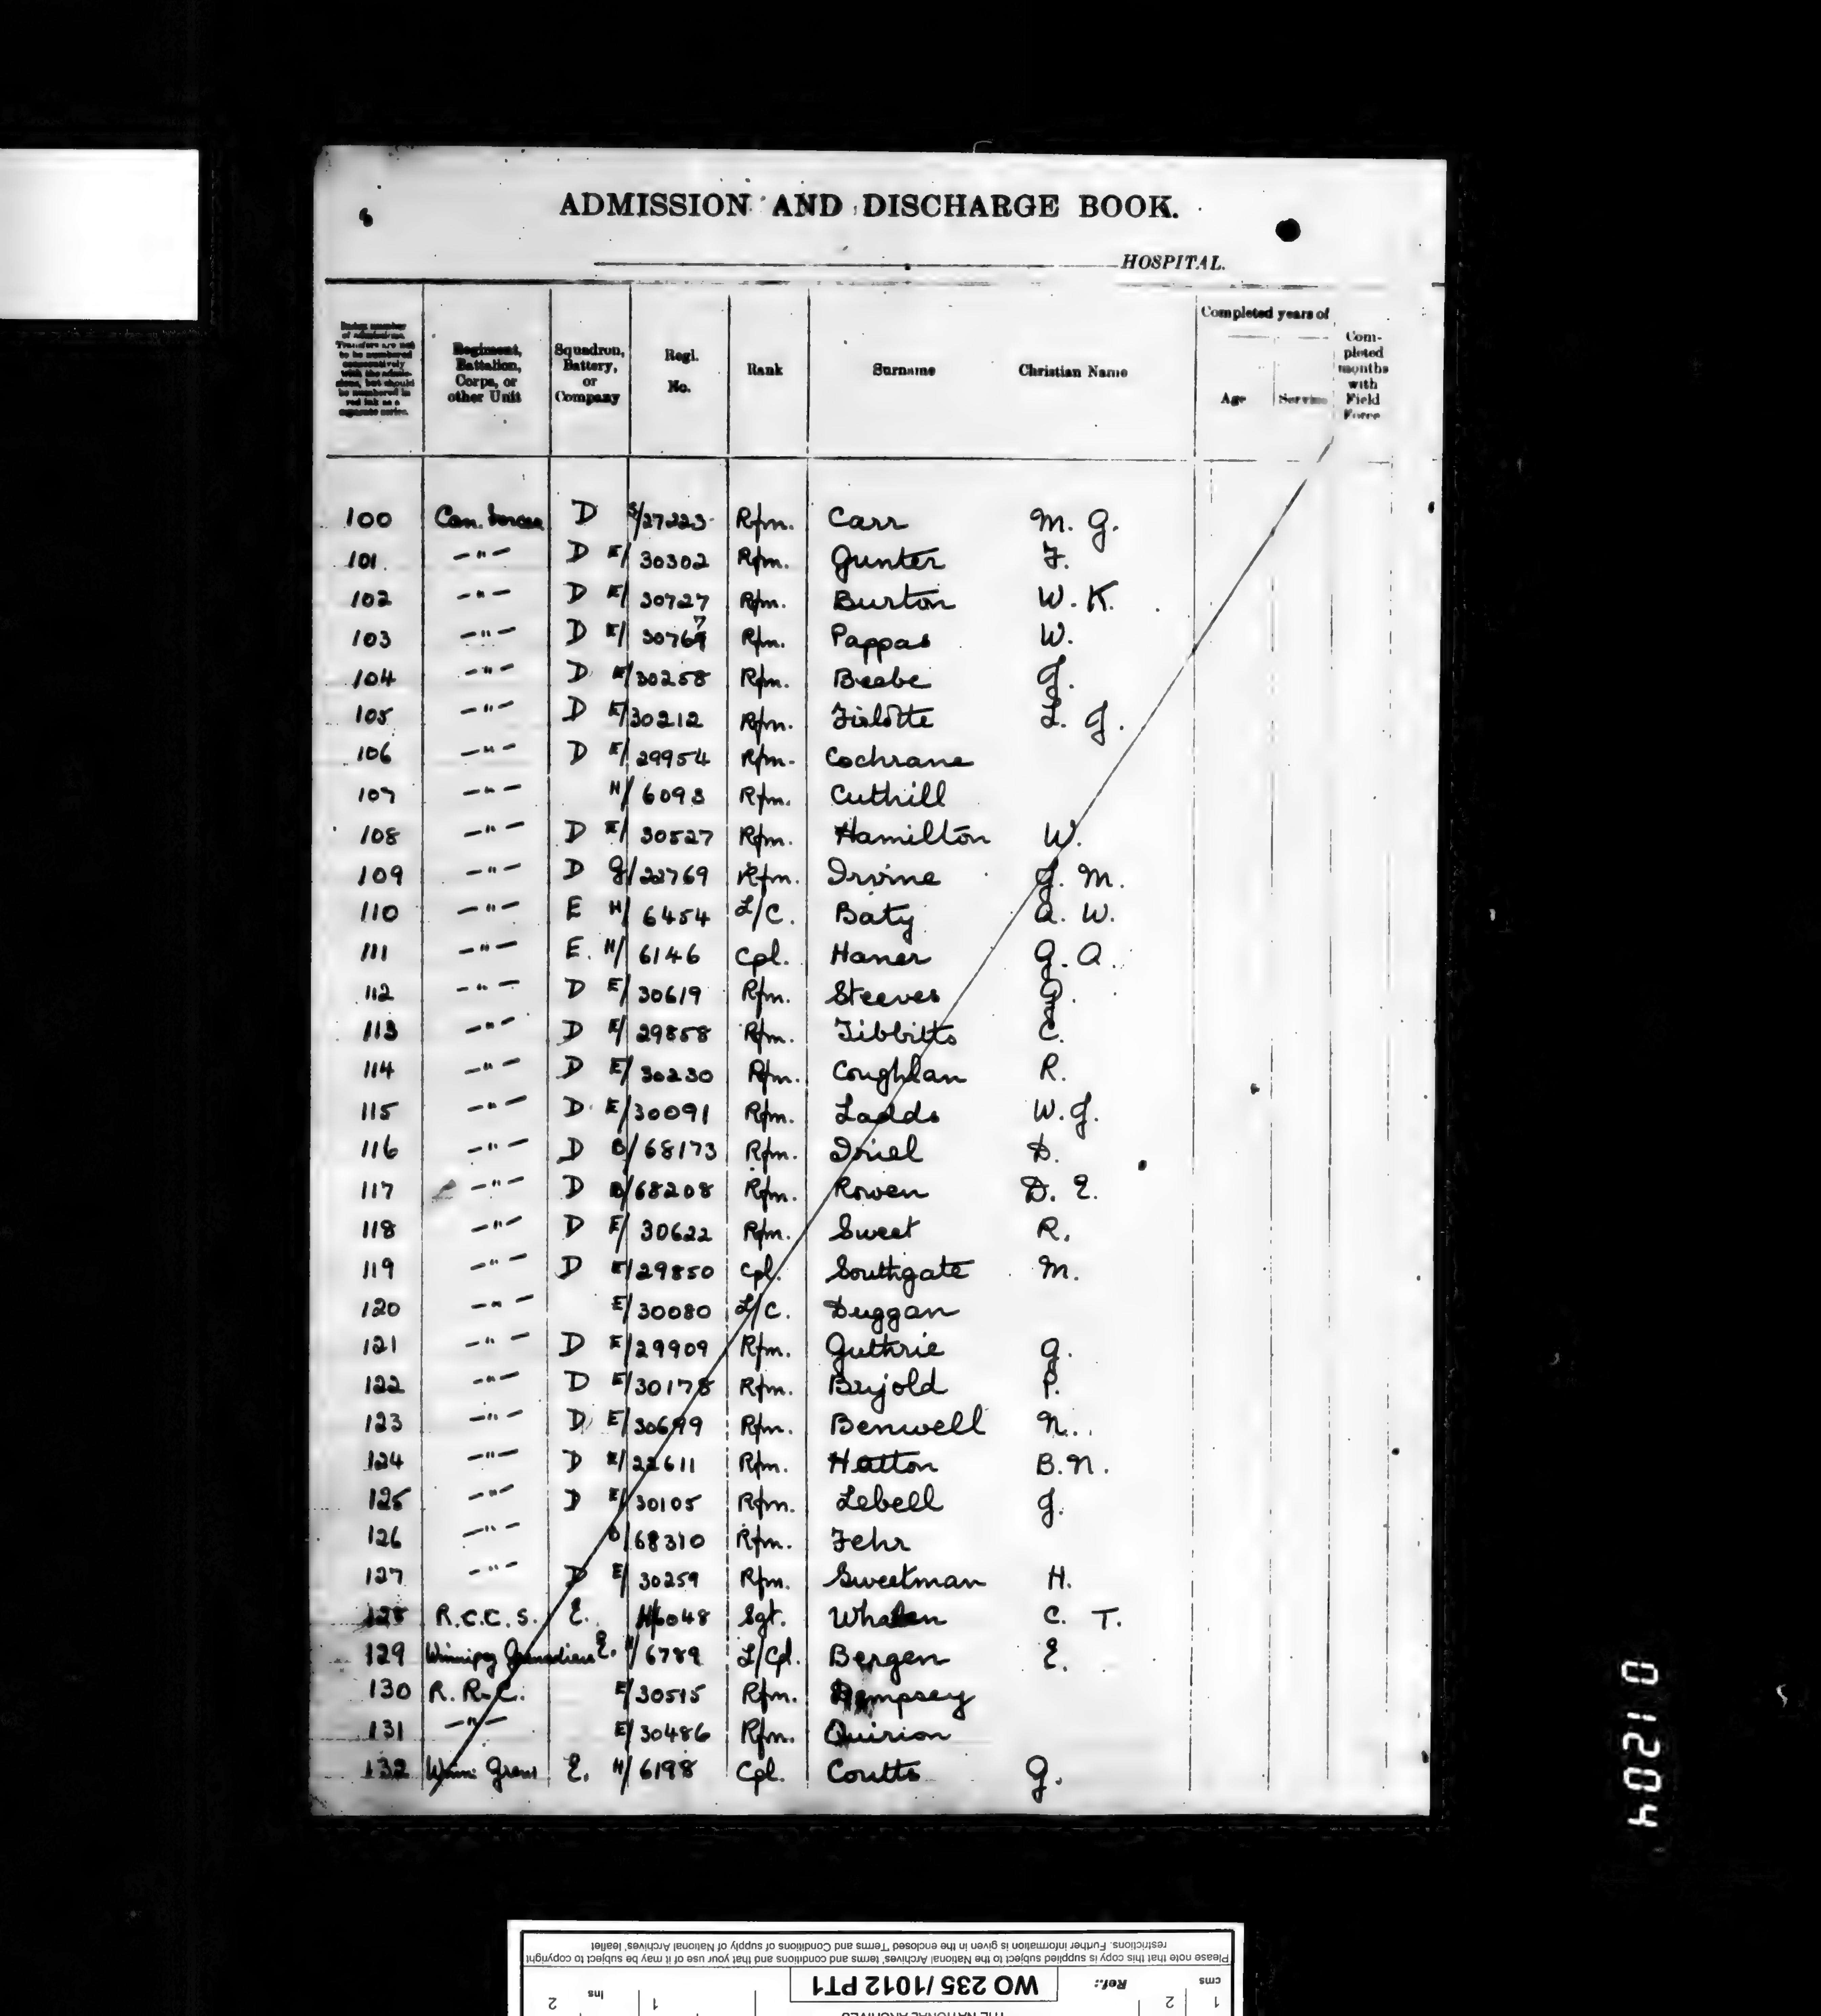 ADMISSION AND DISCHARGE BOOK.
8
HOSPITAL.
Index number of admissions. Transfers are not to be numbered consecutively with the admissions, but should be numbered in red ink as a separate series.
Regiment, Battalion, Corps, or other Unit
Squadron, Battery, or Company
Regl. No.
Rank
Surname
Christian Name
Completed years of
Age
Service
Com-pleted months with Field Force
100 Can. Forces D 27223 Rfm. Carr M. G.
101 -"- D E/ 30302 Rfm. Gunter F.
102 -"- D E/ 30727 Rfm. Burton W. K.
103 -"- D E/ 30767 Rfm. Pappas W.
104 -"- D E/ 30258 Rfm. Beebe J.
105 -"- D E/ 30212 Rfm. Firlotte L. J.
106 -"- D E/ 29954 Rfm. Cochrane
107 -"- H/ 6093 Rfm. Cuthill
108 -"- D E/ 30527 Rfm. Hamilton W.
109 -"- D G/ 22769 Rfm. Irvine J. M.
110 -"- E H/ 6454 L/C. Baty A. W.
111 -"- E. H/ 6146 Cpl. Haner G. A.
112 -"- D E/ 30619 Rfm. Steeves
113 -"- D E/ 29858 Rfm. Tibbitts C.
114 -"- D E/ 30230 Rfm. Coughlan R.
115 -"- D E/ 30091 Rfm. Ladds W. J.
116 -"- D B/ 68173 Rfm. Iriel D.
117 -"- D B/ 68208 Rfm. Rowen D. E.
118 -"- D E/ 30622 Rfm. Sweet R.
119 -"- D E/ 29850 Cpl. Southgate M.
120 -"- E/ 30080 L/C. Duggan
121 -"- D E/ 29909 Rfm. Guthrie G.
122 -"- D E/ 30178 Rfm. Bujold P.
123 -"- D E/ 30699 Rfm. Benwell N.
124 -"- D E/ 22611 Rfm. Hatton B. N.
125 -"- D E/ 30105 Rfm. Lebell J.
126 -"- B/ 68310 Rfm. Fehr
127 -"- D E/ 30259 Rfm. Sweetman H.
128 R.C.C.S. E. H/6048 Sgt. Whalen C. T.
129 Winnipeg Grenadiers E. H/ 6789 L/Cpl. Bergen E.
130 R. R. C. E/ 30515 Rfm. Dempsey
131 -"- E/ 30486 Rfm. Quirion
132 Winn: Grens E. H/ 6198 Cpl. Coutts G.
01204
cms 1 2
THE NATIONAL ARCHIVES
ins 1 2
Ref.: WO 235/1012 PT1
Please note that this copy is supplied subject to the National Archives' terms and conditions and that your use of it may be subject to copyright
restrictions. Further information is given in the enclosed 'Terms and Conditions of supply of National Archives' leaflet